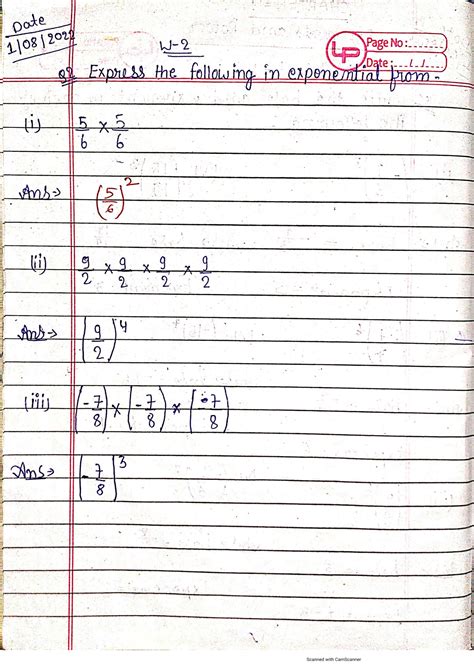 Date
1/08/2022
W-2
LP
Page No:
Date: / /
Q2 Express the following in exponential from-
(i) 5/6 × 5/6
Ans⇒ (5/6)²
(ii) 9/2 × 9/2 × 9/2 × 9/2
Ans⇒ (9/2)⁴
(iii) (-7/8) × (-7/8) × (-7/8)
Ans⇒ (-7/8)³
Scanned with CamScanner